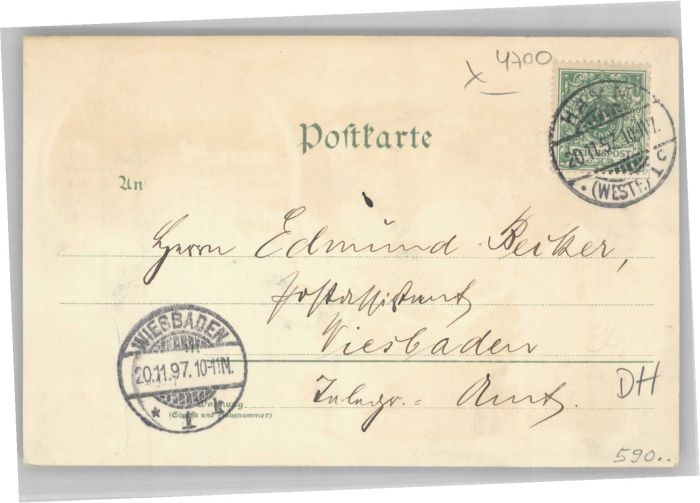 x 4700
Postkarte
An
Herrn Edmund Becker,
Postassistent
Wiesbaden
Telegr.-Amt.
Wohnung
(Straße und Hausnummer)
(WESTF.) 1 C
WIESBADEN
20.11.97. 10-11N.
* 1 k
DH
590..